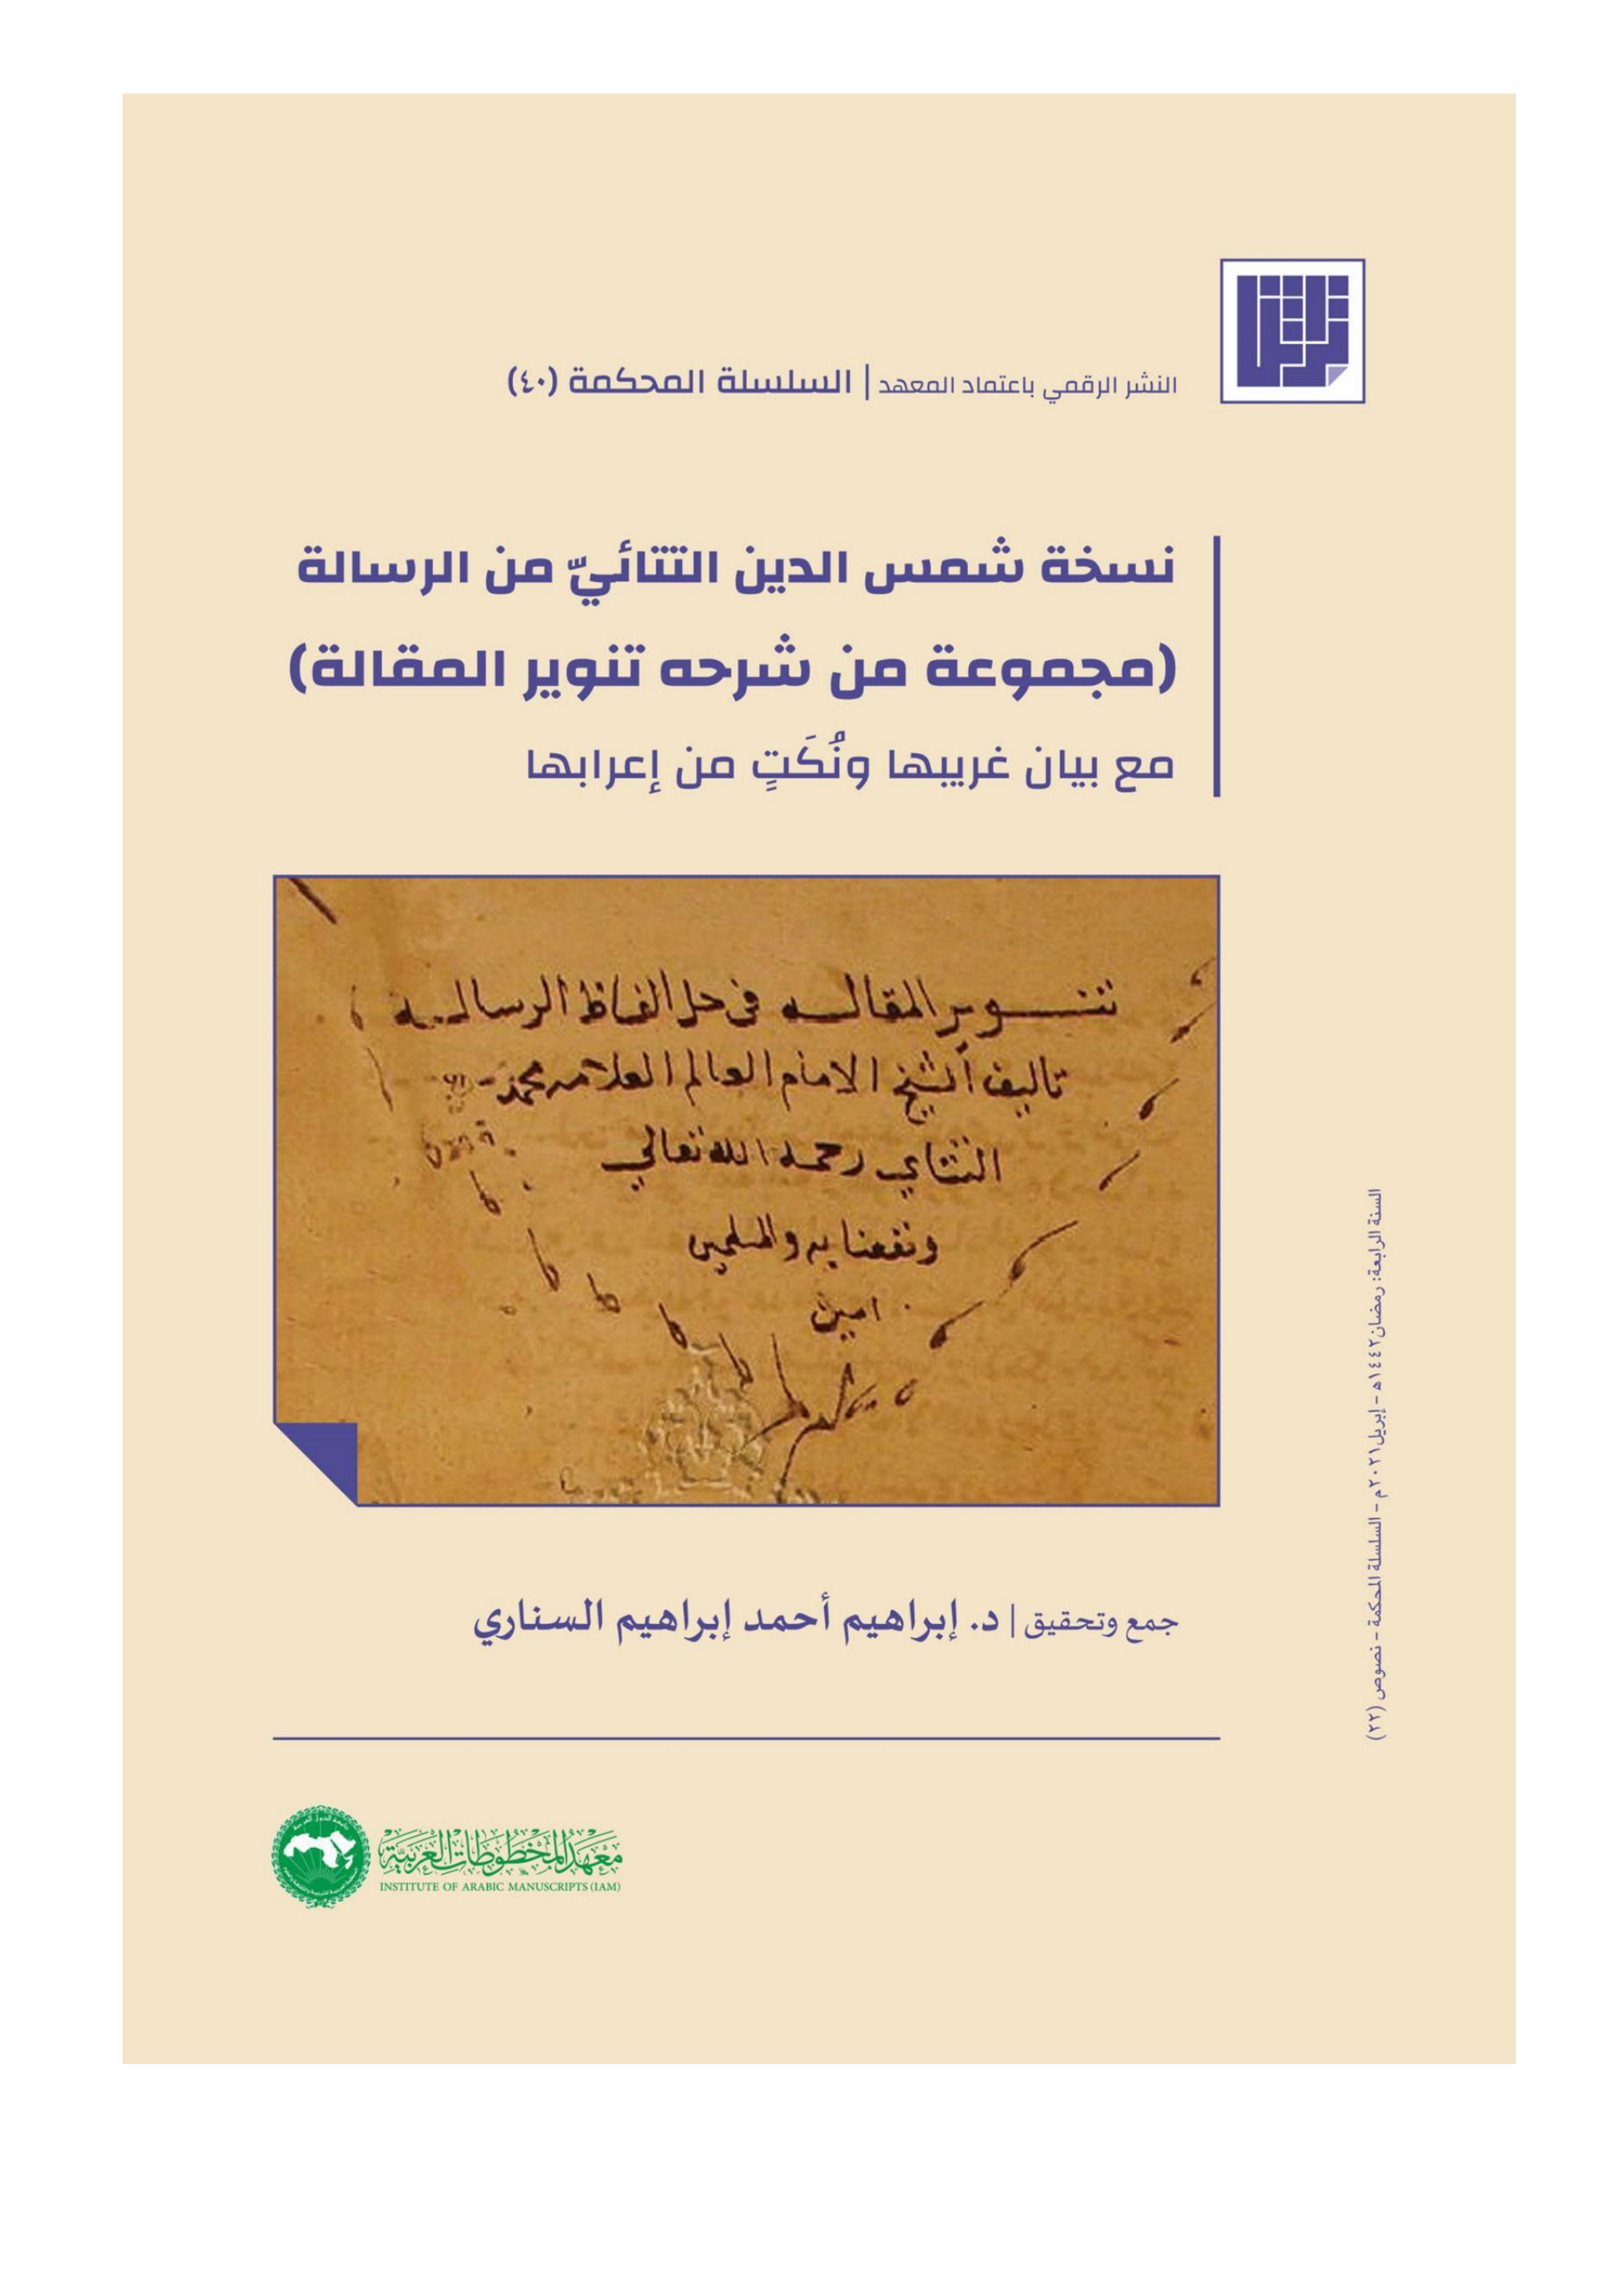 النشر الرقمي باعتماد المعهد | السلسلة المحكمة (٤٠)
نسخة شمس الدين التتائيّ من الرسالة
(مجموعة من شرحه تنوير المقالة)
مع بيان غريبها ونُكَتٍ من إعرابها
تنوير المقاله في حل الفاظ الرساله
تاليف الشيخ الامام العالم العلامه محمد
التتاي رحمه الله تعالي
ونفعنا به والمسلمين
امين
السنة الرابعة: رمضان١٤٤٢هـ - إبريل٢٠٢١م - السلسلة المحكمة - نصوص (٢٢)
جمع وتحقيق | د. إبراهيم أحمد إبراهيم السناري
معهد المخطوطات العربية
INSTITUTE OF ARABIC MANUSCRIPTS (IAM)